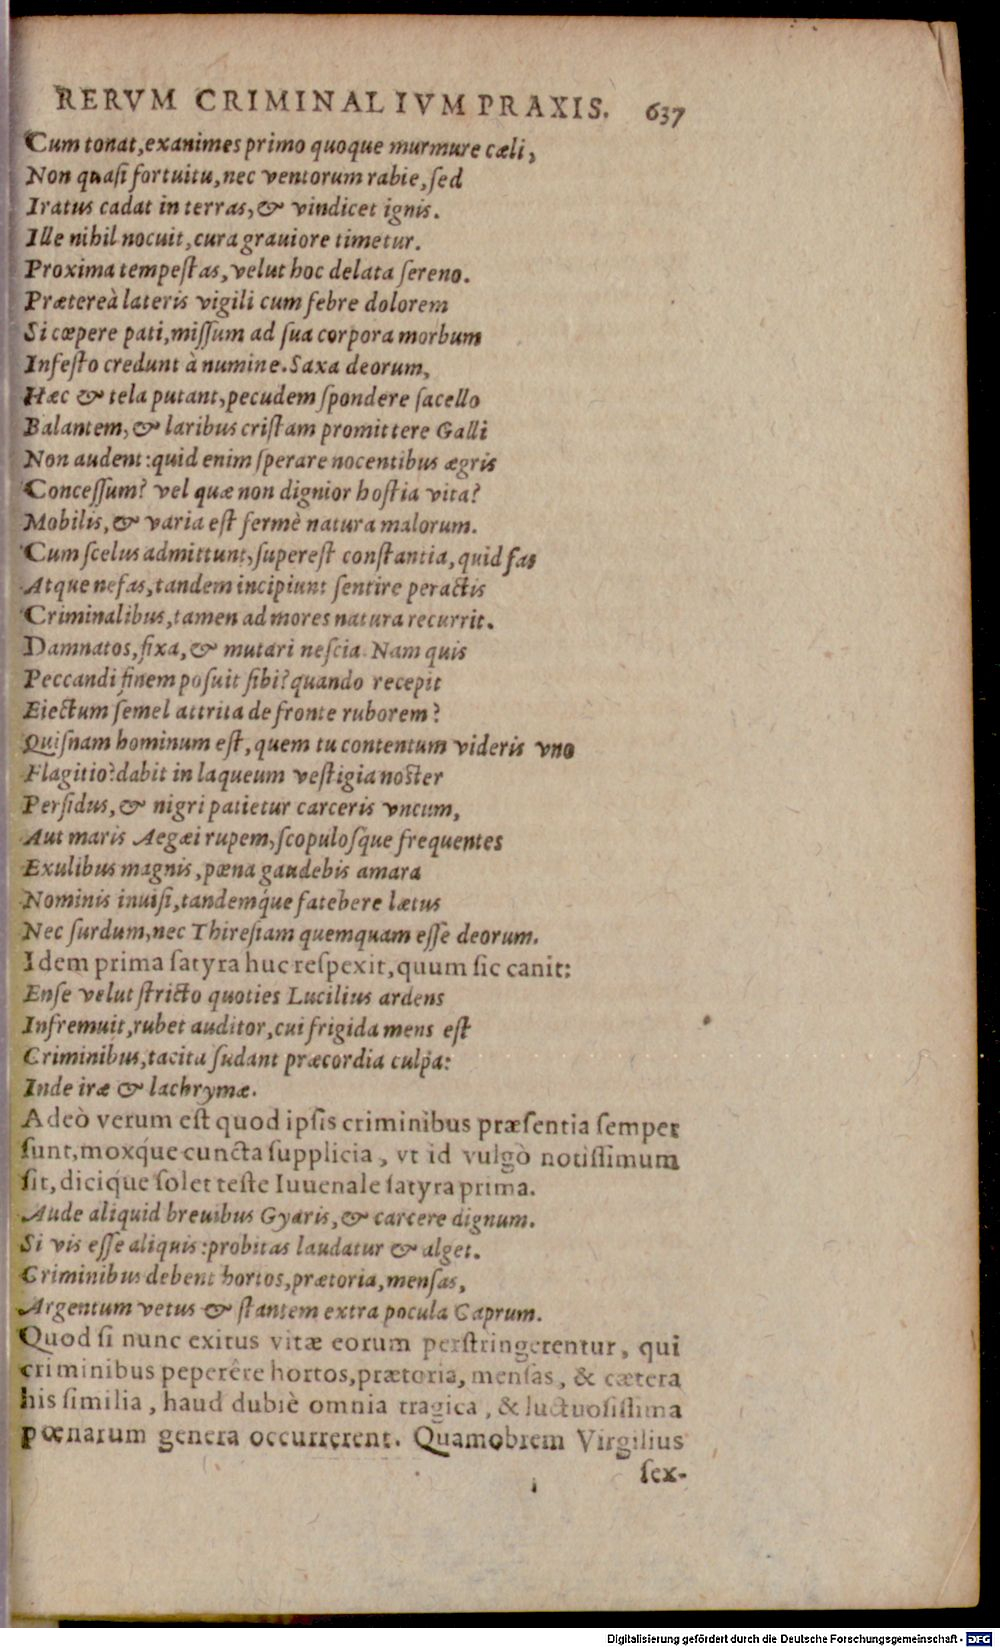 RERVM CRIMINALIVM PRAXIS. 637
Cum tonat, exanimes primo quoque murmure cæli,
Non quaſi fortuitu, nec ventorum rabie, ſed
Iratus cadat in terras, & vindicet ignis.
Ille nihil nocuit, cura grauiore timetur.
Proxima tempeſtas, velut hoc delata ſereno.
Prætereà lateris vigili cum febre dolorem
Si cœpere pati, miſſum ad ſua corpora morbum
Infeſto credunt à numine. Saxa deorum,
Hæc & tela putant, pecudem ſpondere ſacello
Balantem, & laribus criſtam promittere Galli
Non audent: quid enim ſperare nocentibus ægris
Conceſſum? vel quæ non dignior hoſtia vita?
Mobilis, & varia eſt fermè natura malorum.
Cum ſcelus admittunt, ſupereſt conſtantia, quid fas
Atque nefas, tandem incipiunt ſentire peractis
Criminalibus, tamen ad mores natura recurrit.
Damnatos, fixa, & mutari neſcia. Nam quis
Peccandi finem poſuit ſibi? quando recepit
Eiectum ſemel attrita de fronte ruborem?
Quiſnam hominum eſt, quem tu contentum videris vno
Flagitio? dabit in laqueum veſtigia noſter
Perſidus, & nigri patietur carceris vncum,
Aut maris Aegæi rupem, ſcopuloſque frequentes
Exulibus magnis, pœna gaudebis amara
Nominis inuiſi, tandemque fatebere lætus
Nec ſurdum, nec Thireſiam quemquam eſſe deorum.
Idem prima ſatyra huc reſpexit, quum ſic canit:
Enſe velut ſtricto quoties Lucilius ardens
Infremuit, rubet auditor, cui frigida mens eſt
Criminibus, tacita ſudant præcordia culpa:
Inde iræ & lachrymæ.
Adeò verum eſt quod ipſis criminibus præſentia ſemper
ſunt, moxque cuncta ſupplicia, vt id vulgò notiſſimum
ſit, dicique ſolet teſte Iuuenale ſatyra prima.
Aude aliquid breuibus Gyaris, & carcere dignum.
Si vis eſſe aliquis: probitas laudatur & alget.
Criminibus debent hortos, prætoria, menſas,
Argentum vetus & ſtantem extra pocula Caprum.
Quod ſi nunc exitus vitæ eorum perſtringerentur, qui
criminibus peperêre hortos, prætoria, menſas, & cætera
his ſimilia, haud dubiè omnia tragica, & luctuoſiſſima
pœnarum genera occurrerent. Quamobrem Virgilius
ſex-
Digitalisierung gefördert durch die Deutsche Forschungsgemeinschaft - DFG